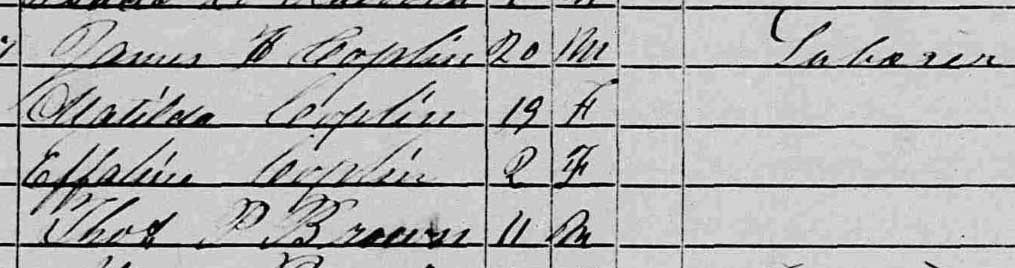 James H Coplin 20 M Laborer
Matilda Coplin 19 F
Effaline Coplin 2 F
Thos P Brown 11 M